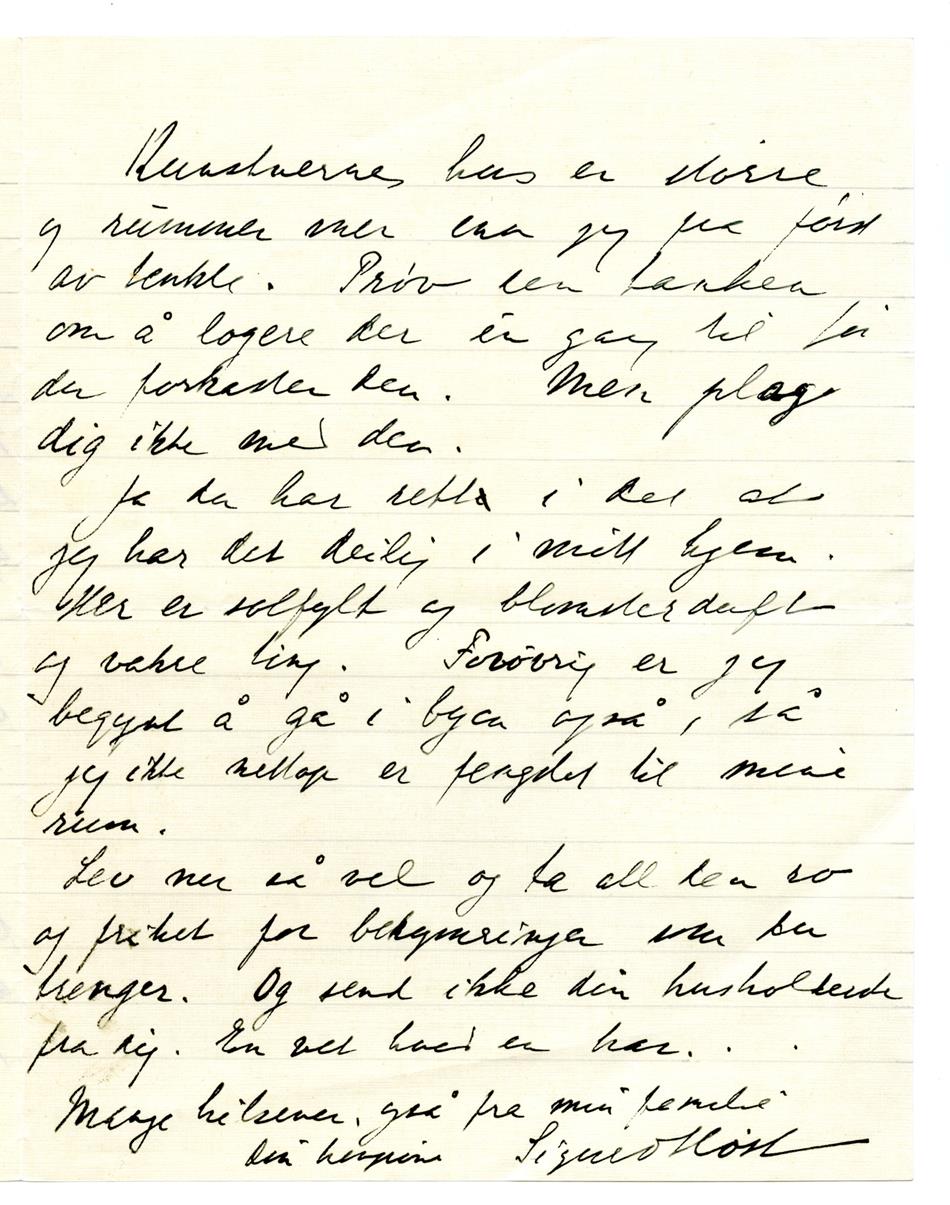 Kunstnernes hus er større
og rummer mer enn jeg fra først
av tenkte. Prøv den tanken
om å logere der én gang til før
du forkaster den. Men plag
dig ikke med den.
Ja du har rett i det at
jeg har det deilig i mitt hjem.
Her er solfylt og blomsterduft
og vakre ting. Forøvrig er jeg
begynt å gå i byen også, så
jeg ikke nettop er fengslet til mine
rum.
Lev nu så vel og ta all den ro
og frihet for bekymringer som du
trenger. Og send ikke din husholderske
fra dig. En vet hvad en har...
Mange hilsener, også fra min familie
din Signe Høst